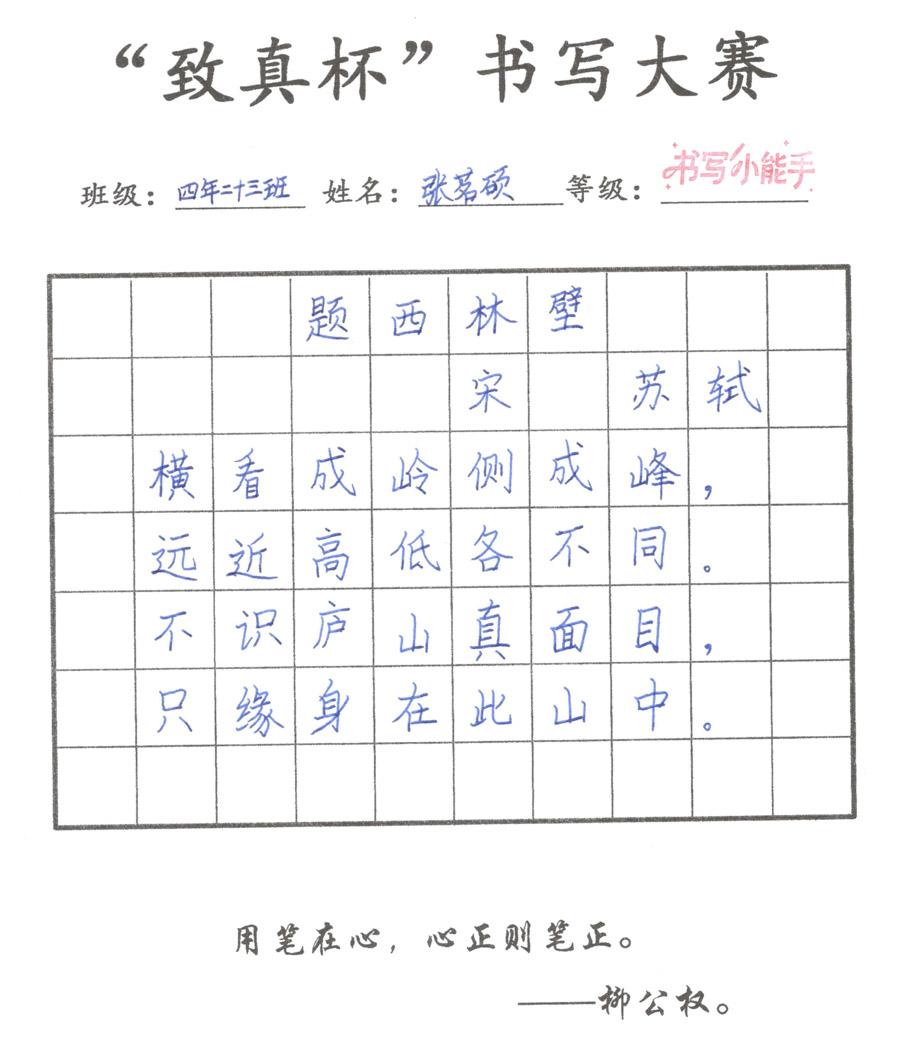 “致真杯”书写大赛
班级：四年二十三班 姓名：张茗硕 等级：书写小能手
题西林壁
宋 苏轼
横看成岭侧成峰，
远近高低各不同。
不识庐山真面目，
只缘身在此山中。
用笔在心，心正则笔正。
——柳公权。